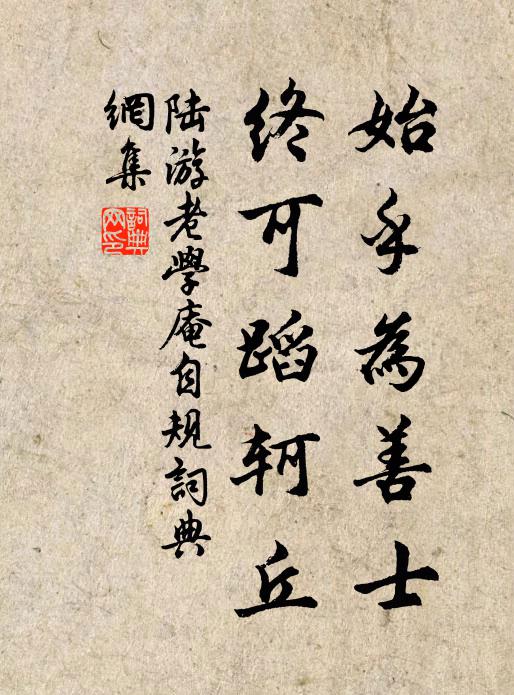 始乎為善士
終可蹈軻丘
陆游老學庵自規詞典
網集
詞典
网印